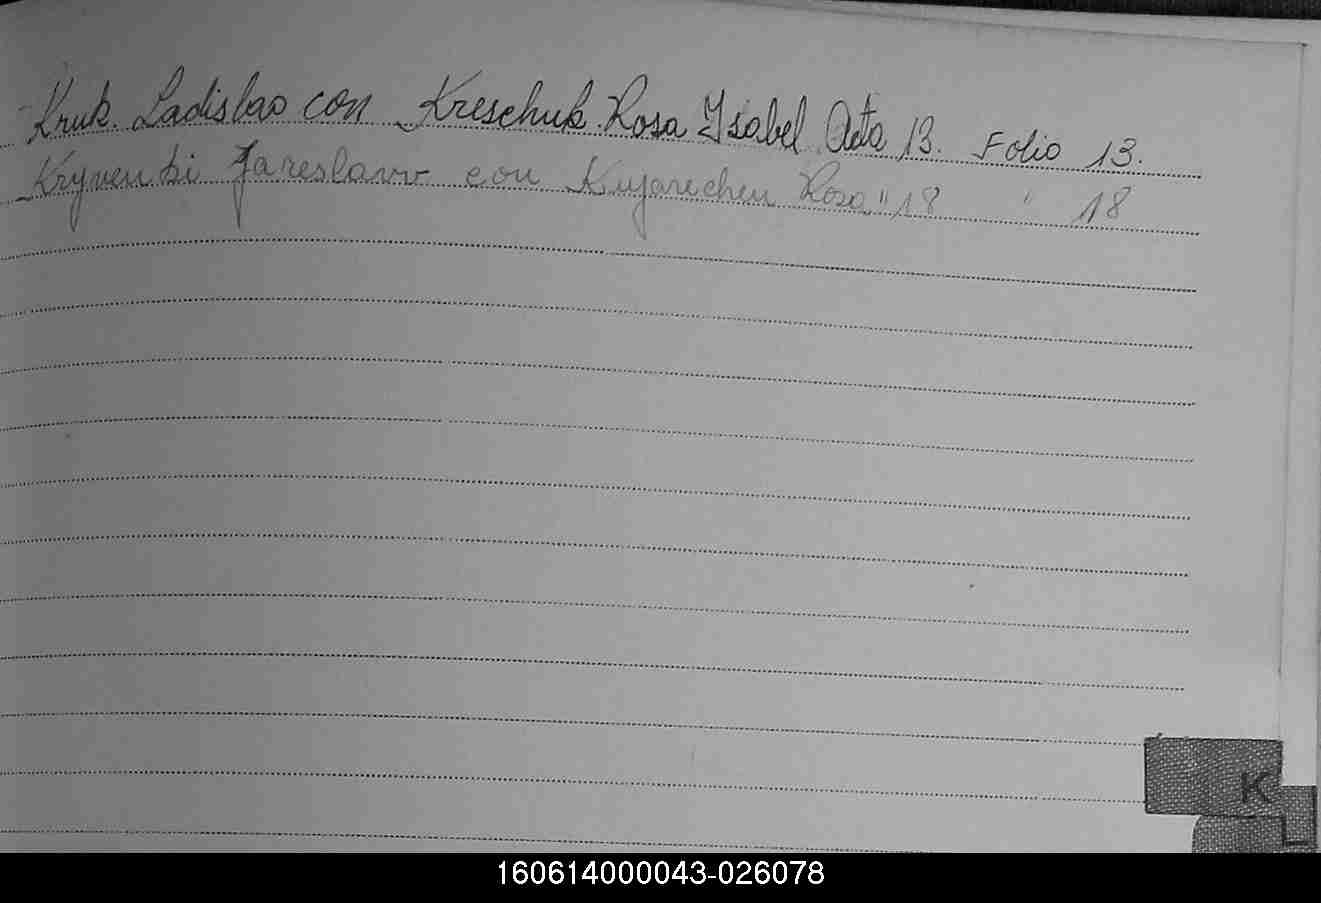 Kruk. Ladislao con Kreschuk Rosa Isabel Acta 13. Folio 13.
Kryvenki Jareslavv con Kujarechen Rosa " 18 " 18
K
L
160614000043-026078